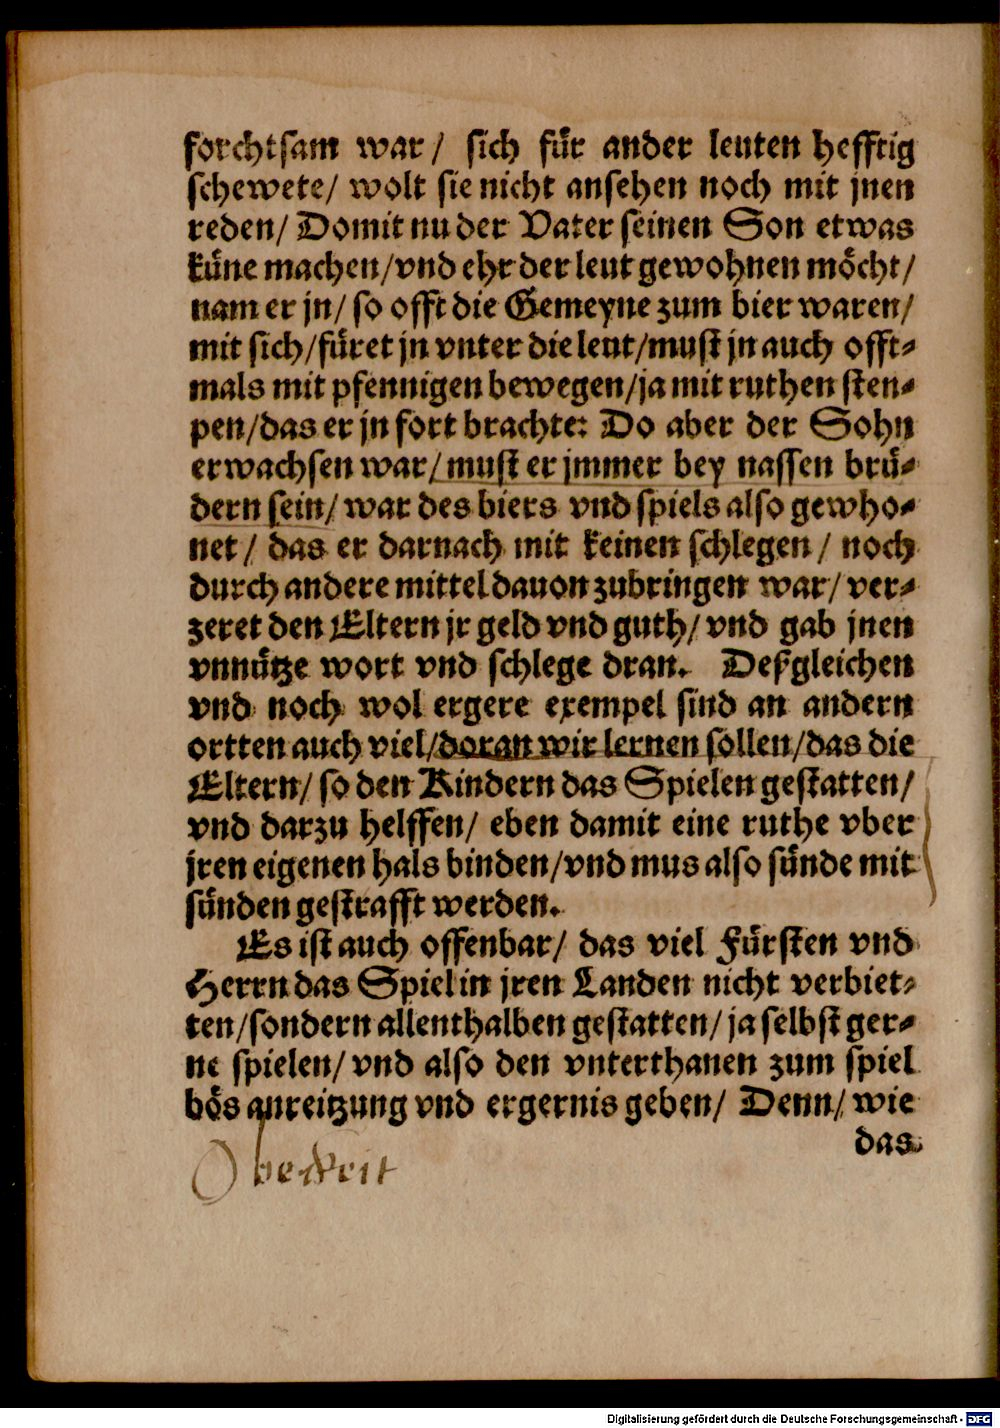 forchtsam war/ sich für ander leuten hefftig
schewete/ wolt sie nicht ansehen noch mit jnen
reden/ Domit nu der Vater seinen Son etwas
küne machen/vnd ehr der leut gewohnen möcht/
nam er jn/ so offt die Gemeyne zum bier waren/
mit sich/füret jn vnter die leut/must jn auch offt-
mals mit pfennigen bewegen/ja mit ruthen sten-
pen/das er jn fort brachte: Do aber der Sohn
erwachsen war/must er jmmer bey nassen brü-
dern sein/ war des biers vnd spiels also gewho-
net/ das er darnach mit keinen schlegen/ noch
durch andere mittel dauon zubringen war/ ver-
zeret den Eltern jr geld vnd guth/ vnd gab jnen
vnnütze wort vnd schlege dran. Deßgleichen
vnd noch wol ergere exempel sind an andern
ortten auch viel/doran wir lernen sollen/das die
Eltern/ so den Kindern das Spielen gestatten/
vnd darzu helffen/ eben damit eine ruthe vber
jren eigenen hals binden/vnd mus also sünde mit
sünden gestrafft werden.
Es ist auch offenbar/ das viel Fürsten vnd
Herrn das Spiel in jren Landen nicht verbiet-
ten/sondern allenthalben gestatten/ja selbst ger-
ne spielen/ vnd also den vnterthanen zum spiel
bös anreitzung vnd ergernis geben/ Denn/ wie
das
Oberkeit
Digitalisierung gefördert durch die Deutsche Forschungsgemeinschaft - DFG